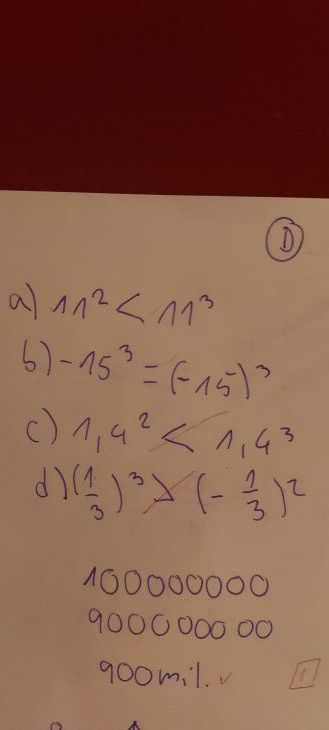 D
a) 11² < 11³
b) -15³ = (-15)³
c) 1,4² < 1,4³
d) (1/3)³ > (-1/3)²
100000000
900000000
900 mil. ✓
1